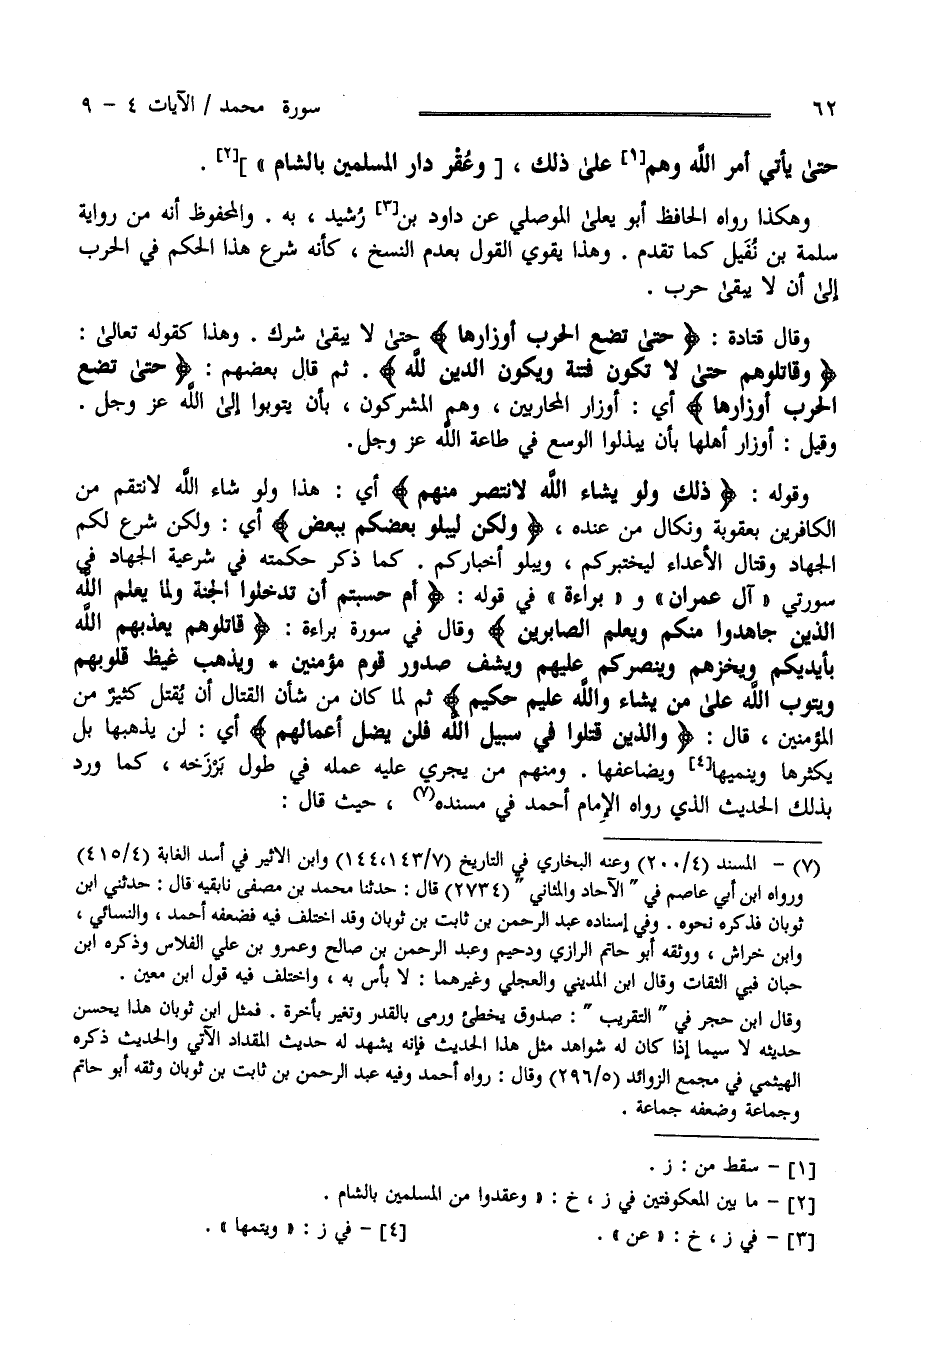 ٦٢ سورة محمد / الآيات ٤ - ٩
حتىٰ يأتي أمر اللَّه وهم[١] علىٰ ذلك ، [ وعُقْر دار المسلمين بالشام » ][٢] .
وهكذا رواه الحافظ أبو يعلىٰ الموصلي عن داود بن[٣] رُشيد ، به . والمحفوظ أنه من رواية
سلمة بن نُفَيل كما تقدم . وهذا يقوي القول بعدم النسخ ، كأنه شرع هذا الحكم في الحرب
إلىٰ أن لا يبقىٰ حرب .
وقال قتادة : ﴿ حتىٰ تضع الحرب أوزارها ﴾ حتىٰ لا يبقىٰ شرك . وهذا كقوله تعالىٰ :
﴿ وقاتلوهم حتىٰ لا تكون فتنة ويكون الدين للَّه ﴾ . ثم قال بعضهم : ﴿ حتىٰ تضع
الحرب أوزارها ﴾ أي : أوزار المحاربين ، وهم المشركون ، بأن يتوبوا إلىٰ اللَّه عز وجل .
وقيل : أوزار أهلها بأن يبذلوا الوسع في طاعة اللَّه عز وجل.
وقوله : ﴿ ذلك ولو يشاء اللَّه لانتصر منهم ﴾ أي : هذا ولو شاء اللَّه لانتقم من
الكافرين بعقوبة ونكال من عنده ، ﴿ ولكن ليبلو بعضكم ببعض ﴾ أي : ولكن شرع لكم
الجهاد وقتال الأعداء ليختبركم ، ويبلو أخباركم . كما ذكر حكمته في شرعية الجهاد في
سورتي « آل عمران» و « براءة » في قوله : ﴿ أم حسبتم أن تدخلوا الجنة ولما يعلم اللَّه
الذين جاهدوا منكم ويعلم الصابرين ﴾ وقال في سورة براءة : ﴿ قاتلوهم يعذبهم اللَّه
بأيديكم ويخزهم وينصركم عليهم ويشف صدور قوم مؤمنين * ويذهب غيظ قلوبهم
ويتوب اللَّه علىٰ من يشاء واللَّه عليم حكيم ﴾ ثم لما كان من شأن القتال أن يُقتل كثيرٌ من
المؤمنين ، قال : ﴿ والذين قتلوا في سبيل اللَّه فلن يضل أعمالهم ﴾ أي : لن يذهبها بل
يكثرها وينميها[٤] ويضاعفها . ومنهم من يجري عليه عمله في طول بَرْزَخه ، كما ورد
بذلك الحديث الذي رواه الإمام أحمد في مسنده(٧) ، حيث قال :
(٧) - المسند (٢٠٠/٤) وعنه البخاري في التاريخ (١٤٤،١٤٣/٧) وابن الاثير في أسد الغابة (٤١٥/٤)
ورواه ابن أبي عاصم في " الآحاد والمثاني " (٢٧٣٤) قال : حدثنا محمد بن مصفى نابقيه قال : حدثني ابن
ثوبان فذكره نحوه . وفي إسناده عبد الرحمن بن ثابت بن ثوبان وقد اختلف فيه فضعفه أحمد ، والنسائي ،
وابن خراش ، ووثقه أبو حاتم الرازي ودحيم وعبد الرحمن بن صالح وعمرو بن علي الفلاس وذكره ابن
حبان فبي الثقات وقال ابن المديني والعجلي وغيرهما : لا بأس به ، واختلف فيه قول ابن معين .
وقال ابن حجر في " التقريب " : صدوق يخطئ ورمى بالقدر وتغير بأخرة . فمثل ابن ثوبان هذا يحسن
حديثه لا سيما إذا كان له شواهد مثل هذا الحديث فإنه يشهد له حديث المقداد الآتي والحديث ذكره
الهيثمي في مجمع الزوائد (٢٩٦/٥) وقال : رواه أحمد وفيه عبد الرحمن بن ثابت بن ثوبان وثقه أبو حاتم
وجماعة وضعفه جماعة .
[١] - سقط من : ز .
[٢] - ما بين المعكوفتين في ز ، خ : « وعقدوا من المسلمين بالشام .
[٣] - في ز ، خ : « عن » . [٤] - في ز : « ويتمها » .